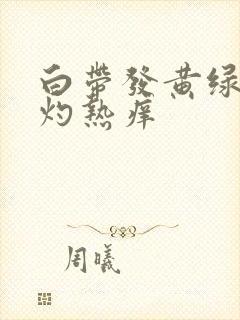 白带發黄绿
灼热痒
周曦